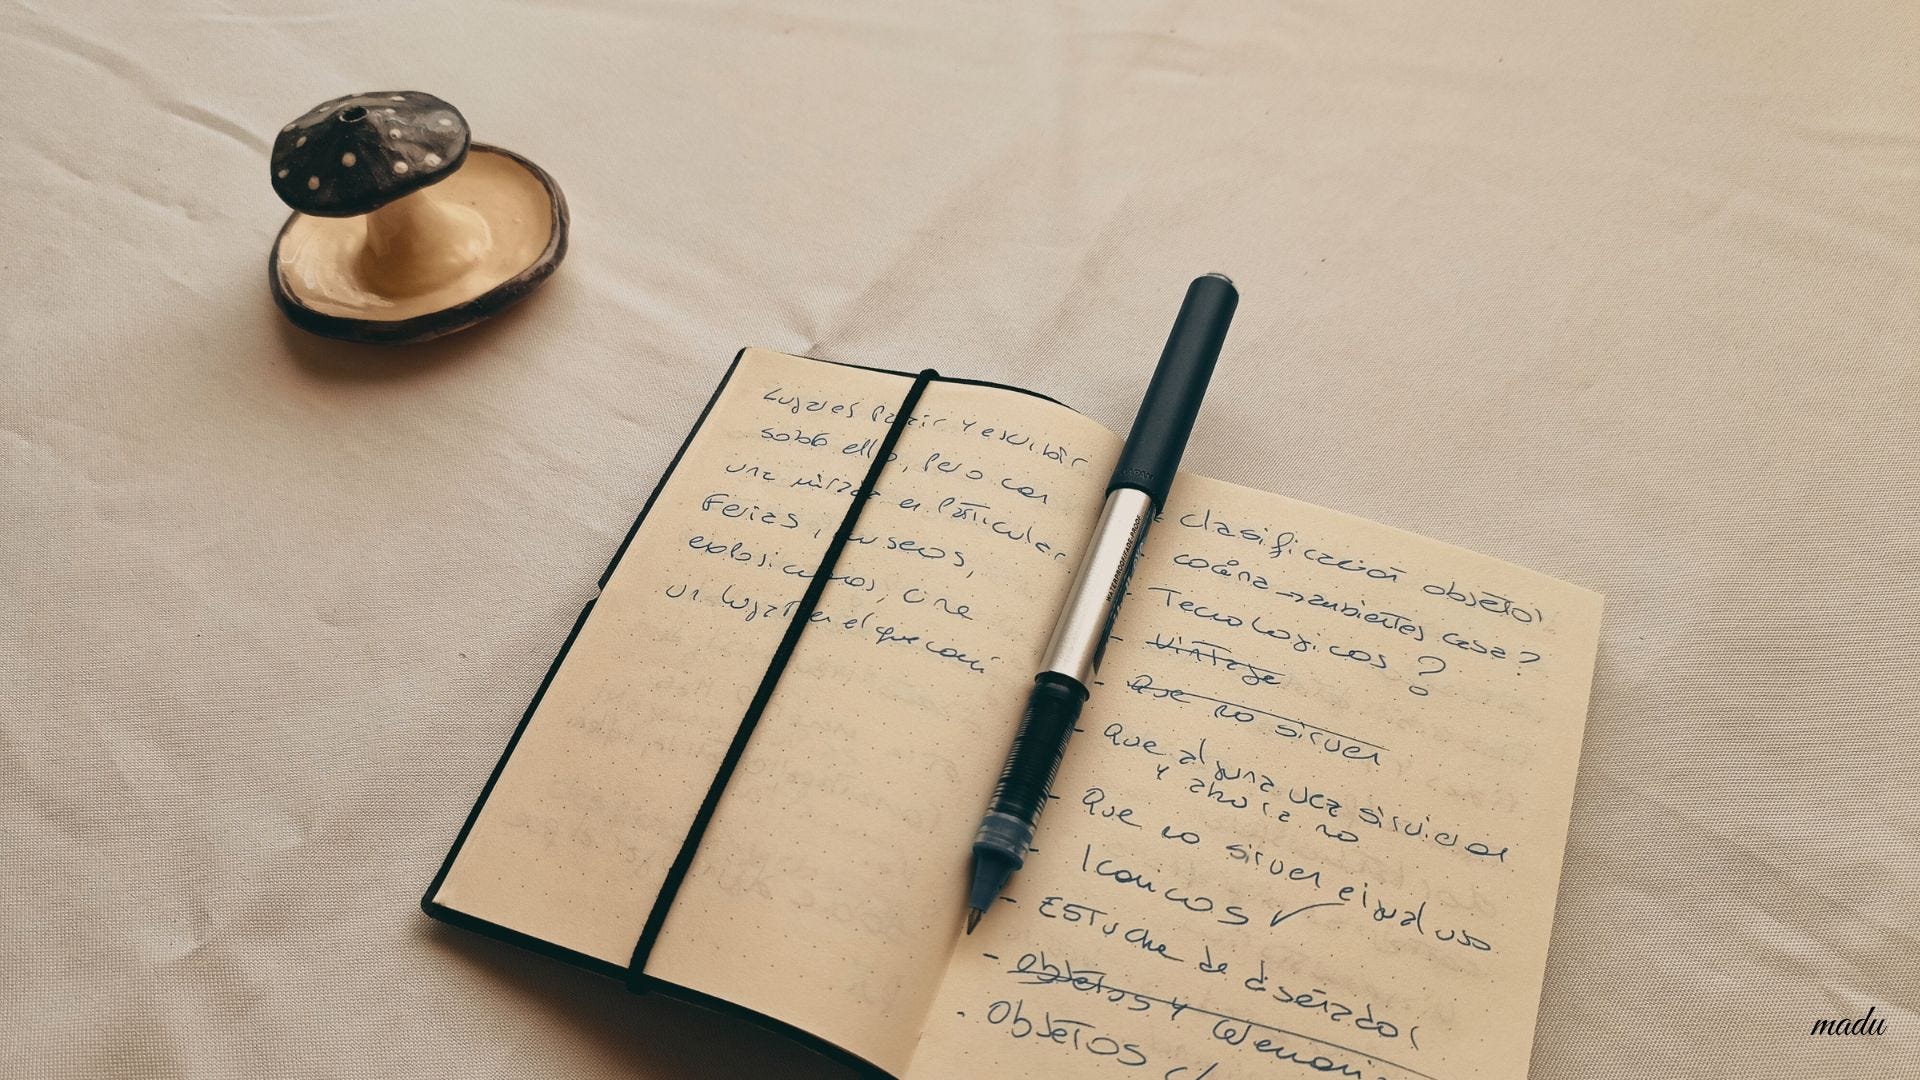 Lugares para ir y escribir
sobre ello, pero con
una mirada en particular.
Ferias, museos,
exposiciones, cine
un lugar en el que comí
- clasificación objetos
- cocina → ambientes casa?
- Tecnologicos?
- vintage
- Que no sirven
- Que alguna vez sirvieron
y ahora no
- Que no sirven e igual uso
- Iconicos ✓
- Estuche de diseñador
- objetos y
- Objetos c/
JAPAN
WATERPROOF/FADE-PROOF
madu